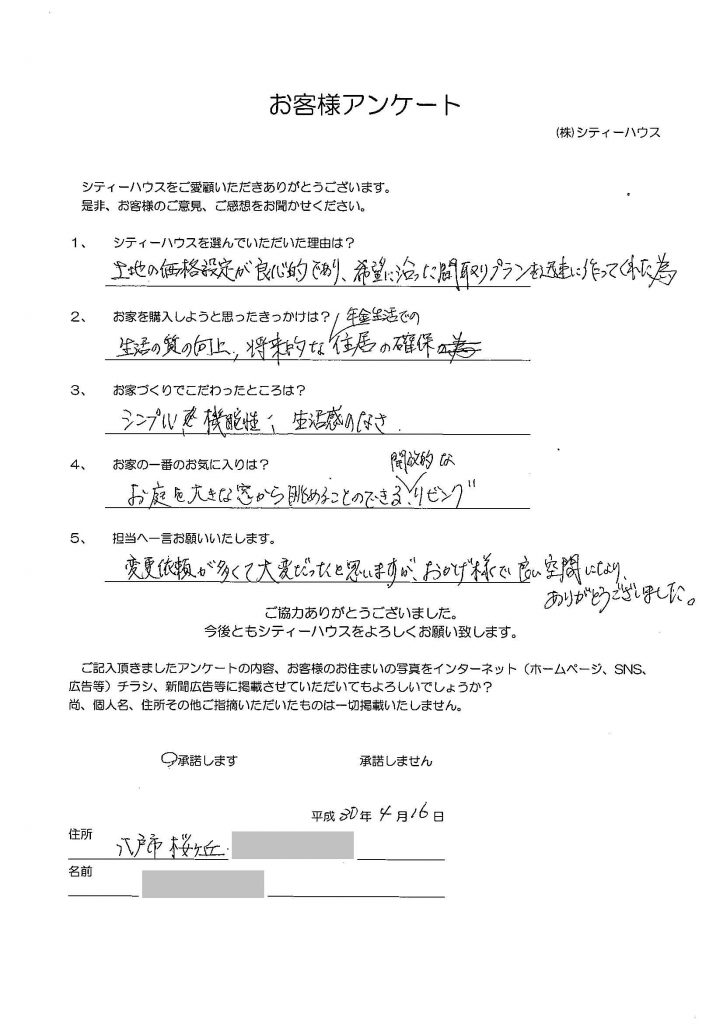 お客様アンケート
(株)シティーハウス
シティーハウスをご愛顧いただきありがとうございます。
是非、お客様のご意見、ご感想をお聞かせください。
1、 シティーハウスを選んでいただいた理由は?
土地の価格設定が良心的であり、希望に沿った間取りプランを迅速に作ってくれた為
2、 お家を購入しようと思ったきっかけは?
年金生活での
生活の質の向上、将来的な住居の確保
3、 お家づくりでこだわったところは?
シンプル 機能性、生活感のなさ
4、 お家の一番のお気に入りは?
開放的な
お庭を大きな窓から眺めることのできるリビング
5、 担当へ一言お願いいたします。
変更依頼が多くて大変だったと思いますが、おかげ様で良い空間になり、
ありがとうございました。
ご協力ありがとうございました。
今後ともシティーハウスをよろしくお願い致します。
ご記入頂きましたアンケートの内容、お客様のお住まいの写真をインターネット(ホームページ、SNS、
広告等)チラシ、新聞広告等に掲載させていただいてもよろしいでしょうか?
尚、個人名、住所その他ご指摘いただいたものは一切掲載いたしません。
承諾します 承諾しません
平成 30 年 4 月 16 日
住所 八戸市 桜ヶ丘
名前